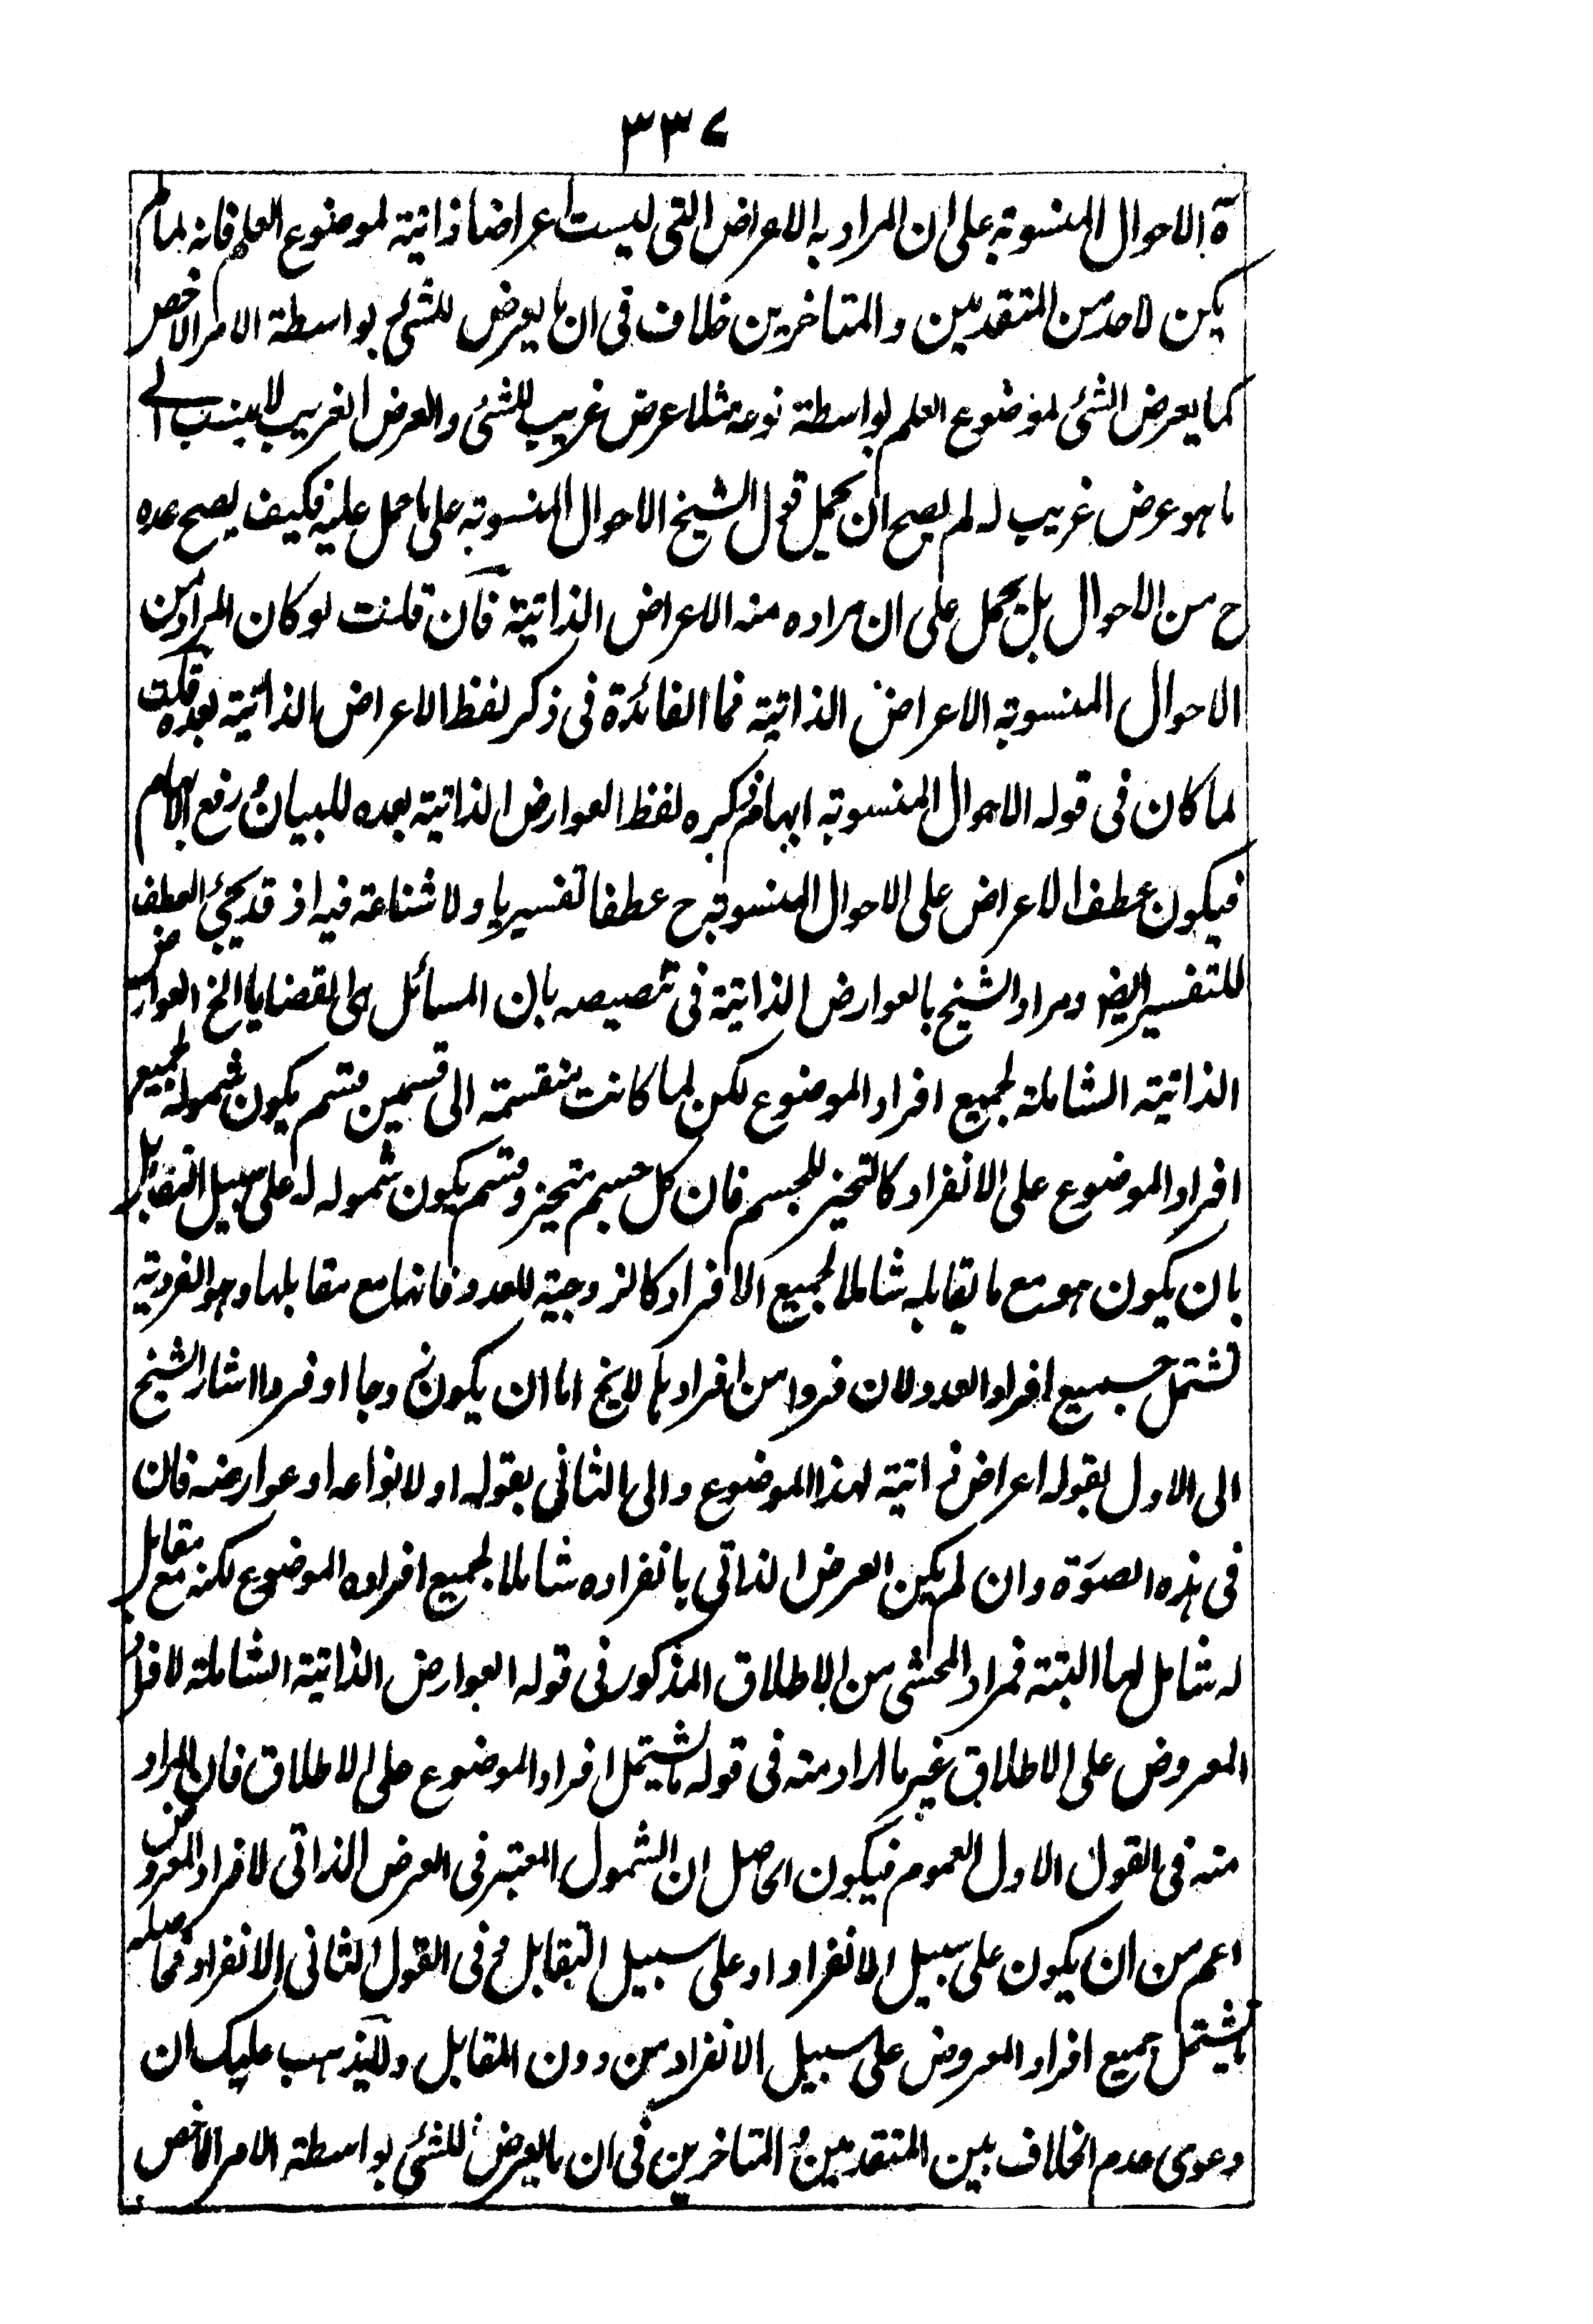 ٣٣٧
ة الاحوال المنسوبة على ان المراد به الاعراض التى ليست اعراضا ذاتية لموضوع العلم فانه لما لم
يكن لاحد من المتقدمين و المتاخرين خلاف فى ان ما يعرض للشئ بواسطة الامر الاخص
كما يعرض الشئ لموضوع العلم بواسطة نوعه مثلا عرض غريب للشئ و العرض الغريب لا ينسب الى
ما هو عرض غريب له لم يصح ان يحمل قول الشيخ الاحوال المنسوبة على ما حمل عليه فكيف يصح عده
ح من الاحوال بل يحمل على ان مراده منه الاعراض الذاتية فان قلت لو كان المراد من
الاحوال المنسوبة الاعراض الذاتية فما الفائدة فى ذكر لفظ الاعراض الذاتية بعده قلت
لما كان فى قوله الاحوال المنسوبة ابهام فذكره لفظ العوارض الذاتية بعده للبيان و رفع الابهام
فيكون عطف الاعراض على الاحوال المنسوبة ح عطفا تفسيريا و لا شناعة فيه اذ قد يجئ العطف
للتفسير ايضا و مراد الشيخ بالعوارض الذاتية فى تنصيصه بان المسائل هى القضايا الخ العوارض
الذاتية الشاملة لجميع افراد الموضوع لكن لما كانت منقسمة الى قسمين قسم يكون شموله لجميع
افراد الموضوع على الانفراد كالتحيز للجسم فان كل جسم متحيز و قسم يكون شموله له على سبيل التقابل
بان يكون هو مع ما يقابله شاملا لجميع الافراد كالزوجية للعدد فانها مع مقابلها و هو الفردية
تشتمل جميع افراد العدد لان فردا من افراد ها لا يخ اما ان يكون زوجا او فردا اشار الشيخ
الى الاول بقوله اعراض ذاتية لهذا الموضوع و الى الثانى بقوله او لانواعه او عوارضه فان
فى هذه الصورة و ان لم يكن العرض الذاتى بانفراده شاملا لجميع افراده الموضوع لكنه مع مقابل
له شامل لها البتة فمراد المحشى من الاطلاق المذكور فى قوله العوارض الذاتية الشاملة لافراد
المعروض على الاطلاق غير ما اراد منه فى قوله ما يشتمل افراد الموضوع على الاطلاق فان المراد
منه فى القول الاول العموم فيكون الحاصل ان الشمول المعتبر فى العرض الذاتى لافراد المعروض
اعم من ان يكون على سبيل الانفراد او على سبيل التقابل و فى القول الثانى الانفراد فحاصله
ما يشتمل جميع افراد المعروض على سبيل الانفراد من دون المقابل و لا يذهب عليك ان
دعوى عدم الخلاف بين المتقدمين و المتاخرين فى ان ما يعرض للشئ بواسطة الامر الاخص